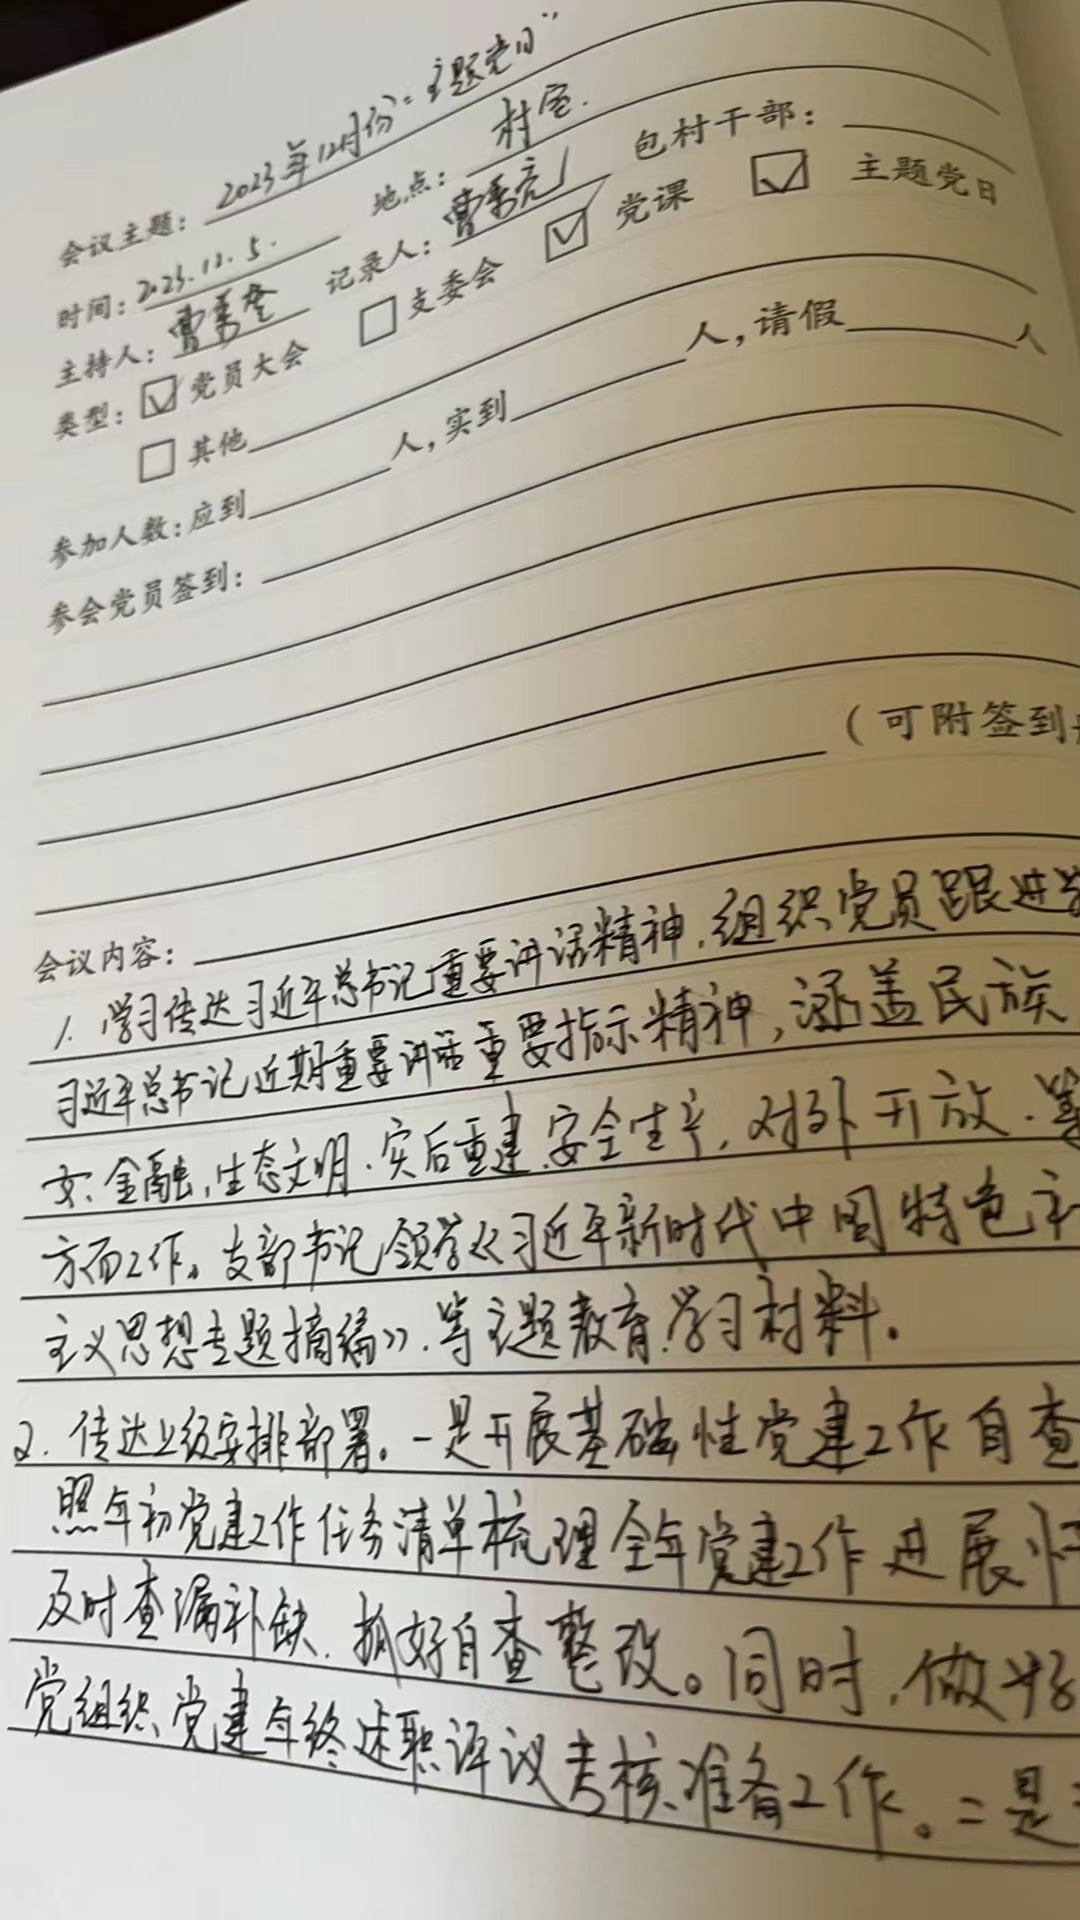 会议主题：2023年12月份"主题党日"
时间：2023.12.5. 地点：村室. 包村干部：
主持人：曹秀 记录人：曹秀亮
类型：☑党员大会 □支委会 ☑党课 ☑主题党日
□其他
参加人数：应到 人，实到 人，请假 人
参会党员签到：
（可附签到
会议内容：
1. 学习传达习近平总书记重要讲话精神，组织党员跟进学
习近平总书记近期重要讲话重要指示精神，涵盖民族
女、金融，生态文明.灾后重建、安全生产，对外开放.等
方面工作。支部书记领学《习近平新时代中国特色社
主义思想专题摘编》.等主题教育学习材料。
2. 传达上级安排部署。一是开展基础性党建工作自查
照年初党建工作任务清单梳理全年党建工作进展情
及时查漏补缺，抓好自查整改。同时，做好
党组织党建年终述职评议考核准备工作。二是